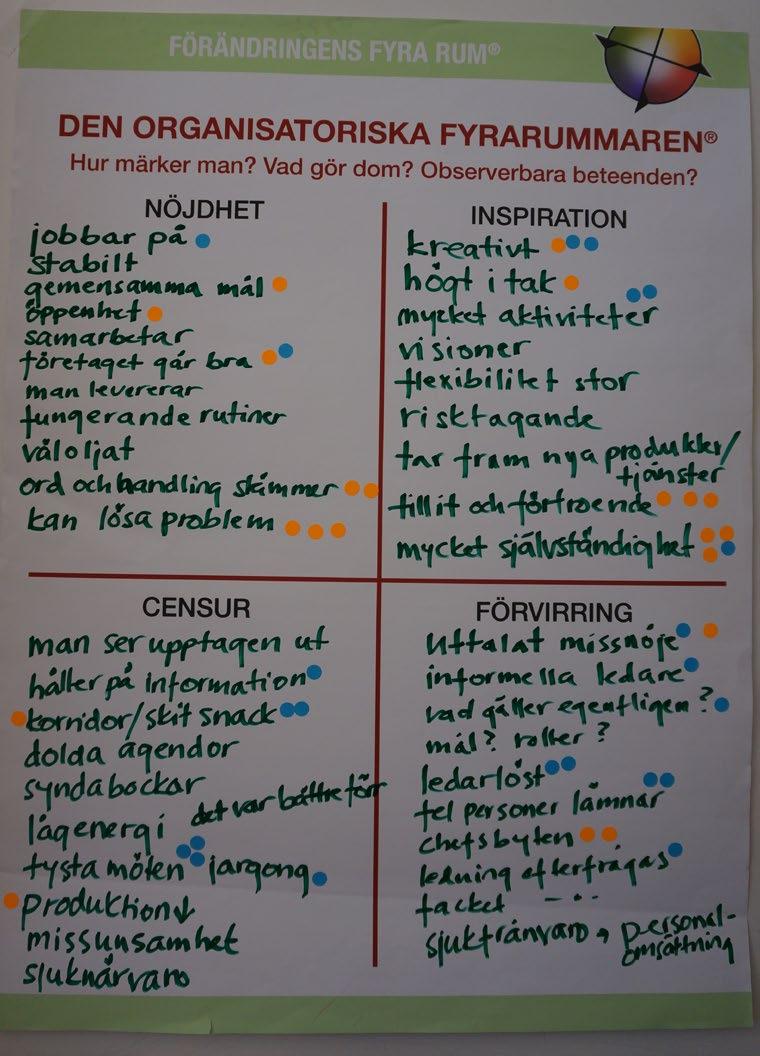 FÖRÄNDRINGENS FYRA RUM®
DEN ORGANISATORISKA FYRARUMMAREN®
Hur märker man? Vad gör dom? Observerbara beteenden?
NÖJDHET
jobbar på
stabilt
gemensamma mål
öppenhet
samarbetar
företaget går bra
man levererar
fungerande rutiner
väloljat
ord och handling stämmer
kan lösa problem
INSPIRATION
kreativt
högt i tak
mycket aktiviteter
visioner
flexibilitet stor
risktagande
tar fram nya produkter/
tjänster
tillit och förtroende
mycket självständighet
CENSUR
man ser upptagen ut
håller på information
korridor/skit snack
dolda agendor
syndabockar
låg energi det var bättre förr
tysta möten jargong
produktion↓
missunsamhet
sjuknärvaro
FÖRVIRRING
uttalat missnöje
informella ledare
vad gäller egentligen?
mål? roller?
ledarlöst
fel personer lämnar
chefsbyten
ledning efterfrågas
facket – " –
sjukfrånvaro, personal-
omsättning